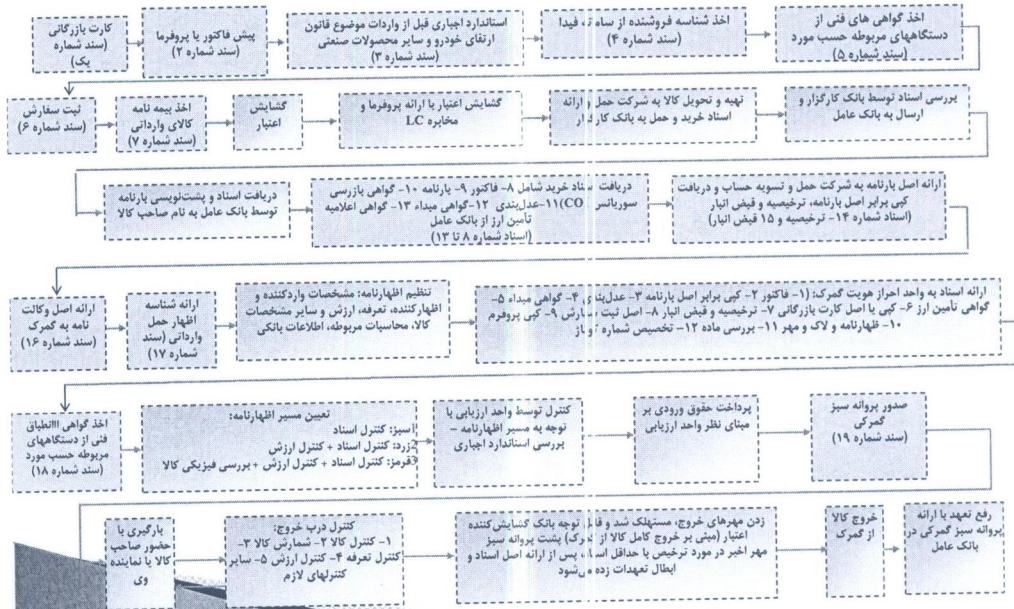 کارت بازرگانی
(سند شماره
یک)
پیش فاکتور یا پروفرما
(سند شماره ۲)
استاندارد اجباری قبل از واردات موضوع قانون
ارتقای خودرو و سایر محصولات صنعتی
(سند شماره ۳)
اخذ شناسه فروشنده از سامانه فیدا
(سند شماره ۴)
اخذ گواهی های فنی از
دستگاههای مربوطه حسب مورد
(سند شماره ۵)
ثبت سفارش
(سند شماره ۶)
اخذ بیمه نامه
کالای وارداتی
(سند شماره ۷)
گشایش
اعتبار
گشایش اعتبار با ارائه پروفرما و
مخابره LC
تهیه و تحویل کالا به شرکت حمل و ارائه
اسناد خرید و حمل به بانک کارگزار
بررسی اسناد توسط بانک کارگزار و
ارسال به بانک عامل
دریافت اسناد و پشت‌نویسی بارنامه
توسط بانک عامل به نام صاحب کالا
دریافت اسناد خرید شامل ۸- فاکتور ۹- بارنامه ۱۰- گواهی بازرسی
سوریانس (CO)۱۱-عدل‌بندی ۱۲-گواهی مبداء ۱۳- گواهی اعلامیه
تأمین ارز از بانک عامل
(اسناد شماره ۸ تا ۱۳)
ارائه اصل بارنامه به شرکت حمل و تسویه حساب و دریافت
کپی برابر اصل بارنامه، ترخیصیه و قبض انبار
(اسناد شماره ۱۴- ترخیصیه و ۱۵ قبض انبار)
ارائه اصل وکالت
نامه به گمرک
(سند شماره ۱۶)
ارائه شناسه
اظهار حمل
وارداتی (سند
شماره ۱۷)
تنظیم اظهارنامه: مشخصات واردکننده و
اظهارکننده، تعرفه، ارزش و سایر مشخصات
کالا، محاسبات مربوطه، اطلاعات بانکی
ارائه اسناد به واحد احراز هویت گمرک: (۱- فاکتور ۲- کپی برابر اصل بارنامه ۳- عدل‌بندی ۴- گواهی مبداء ۵-
گواهی تأمین ارز ۶- کپی یا اصل کارت بازرگانی ۷- ترخیصیه و قبض انبار ۸- اصل ثبت سفارش ۹- کپی پروفرم
۱۰- ظهارنامه و لاک و مهر ۱۱- بررسی ماده ۱۲- تخصیص شماره کوتاژ
اخذ گواهی انطباق
فنی از دستگاههای
مربوطه حسب مورد
(سند شماره ۱۸)
تعیین مسیر اظهارنامه:
1سبز: کنترل اسناد
2زرد: کنترل اسناد + کنترل ارزش
3قرمز: کنترل اسناد + کنترل ارزش + بررسی فیزیکی کالا
کنترل توسط واحد ارزیابی با
توجه به مسیر اظهارنامه –
بررسی استاندارد اجباری
پرداخت حقوق ورودی بر
مبنای نظر واحد ارزیابی
صدور پروانه سبز
گمرکی
(سند شماره ۱۹)
بارگیری با
حضور صاحب
کالا یا نماینده
وی
کنترل درب خروج:
۱- کنترل کالا ۲- شمارش کالا ۳-
کنترل تعرفه ۴- کنترل ارزش ۵- سایر
کنترلهای لازم
زدن مهرهای خروج، مستهلک شد و قابل توجه بانک گشایش‌کننده
اعتبار (مبنی بر خروج کامل کالا از گمرک) پشت پروانه سبز
مهر اخیر در مورد ترخیص با حداقل اسناد، پس از ارائه اصل اسناد و
ابطال تعهدات زده می‌شود
خروج کالا
از گمرک
رفع تعهد با ارائه
پروانه سبز گمرکی در
بانک عامل